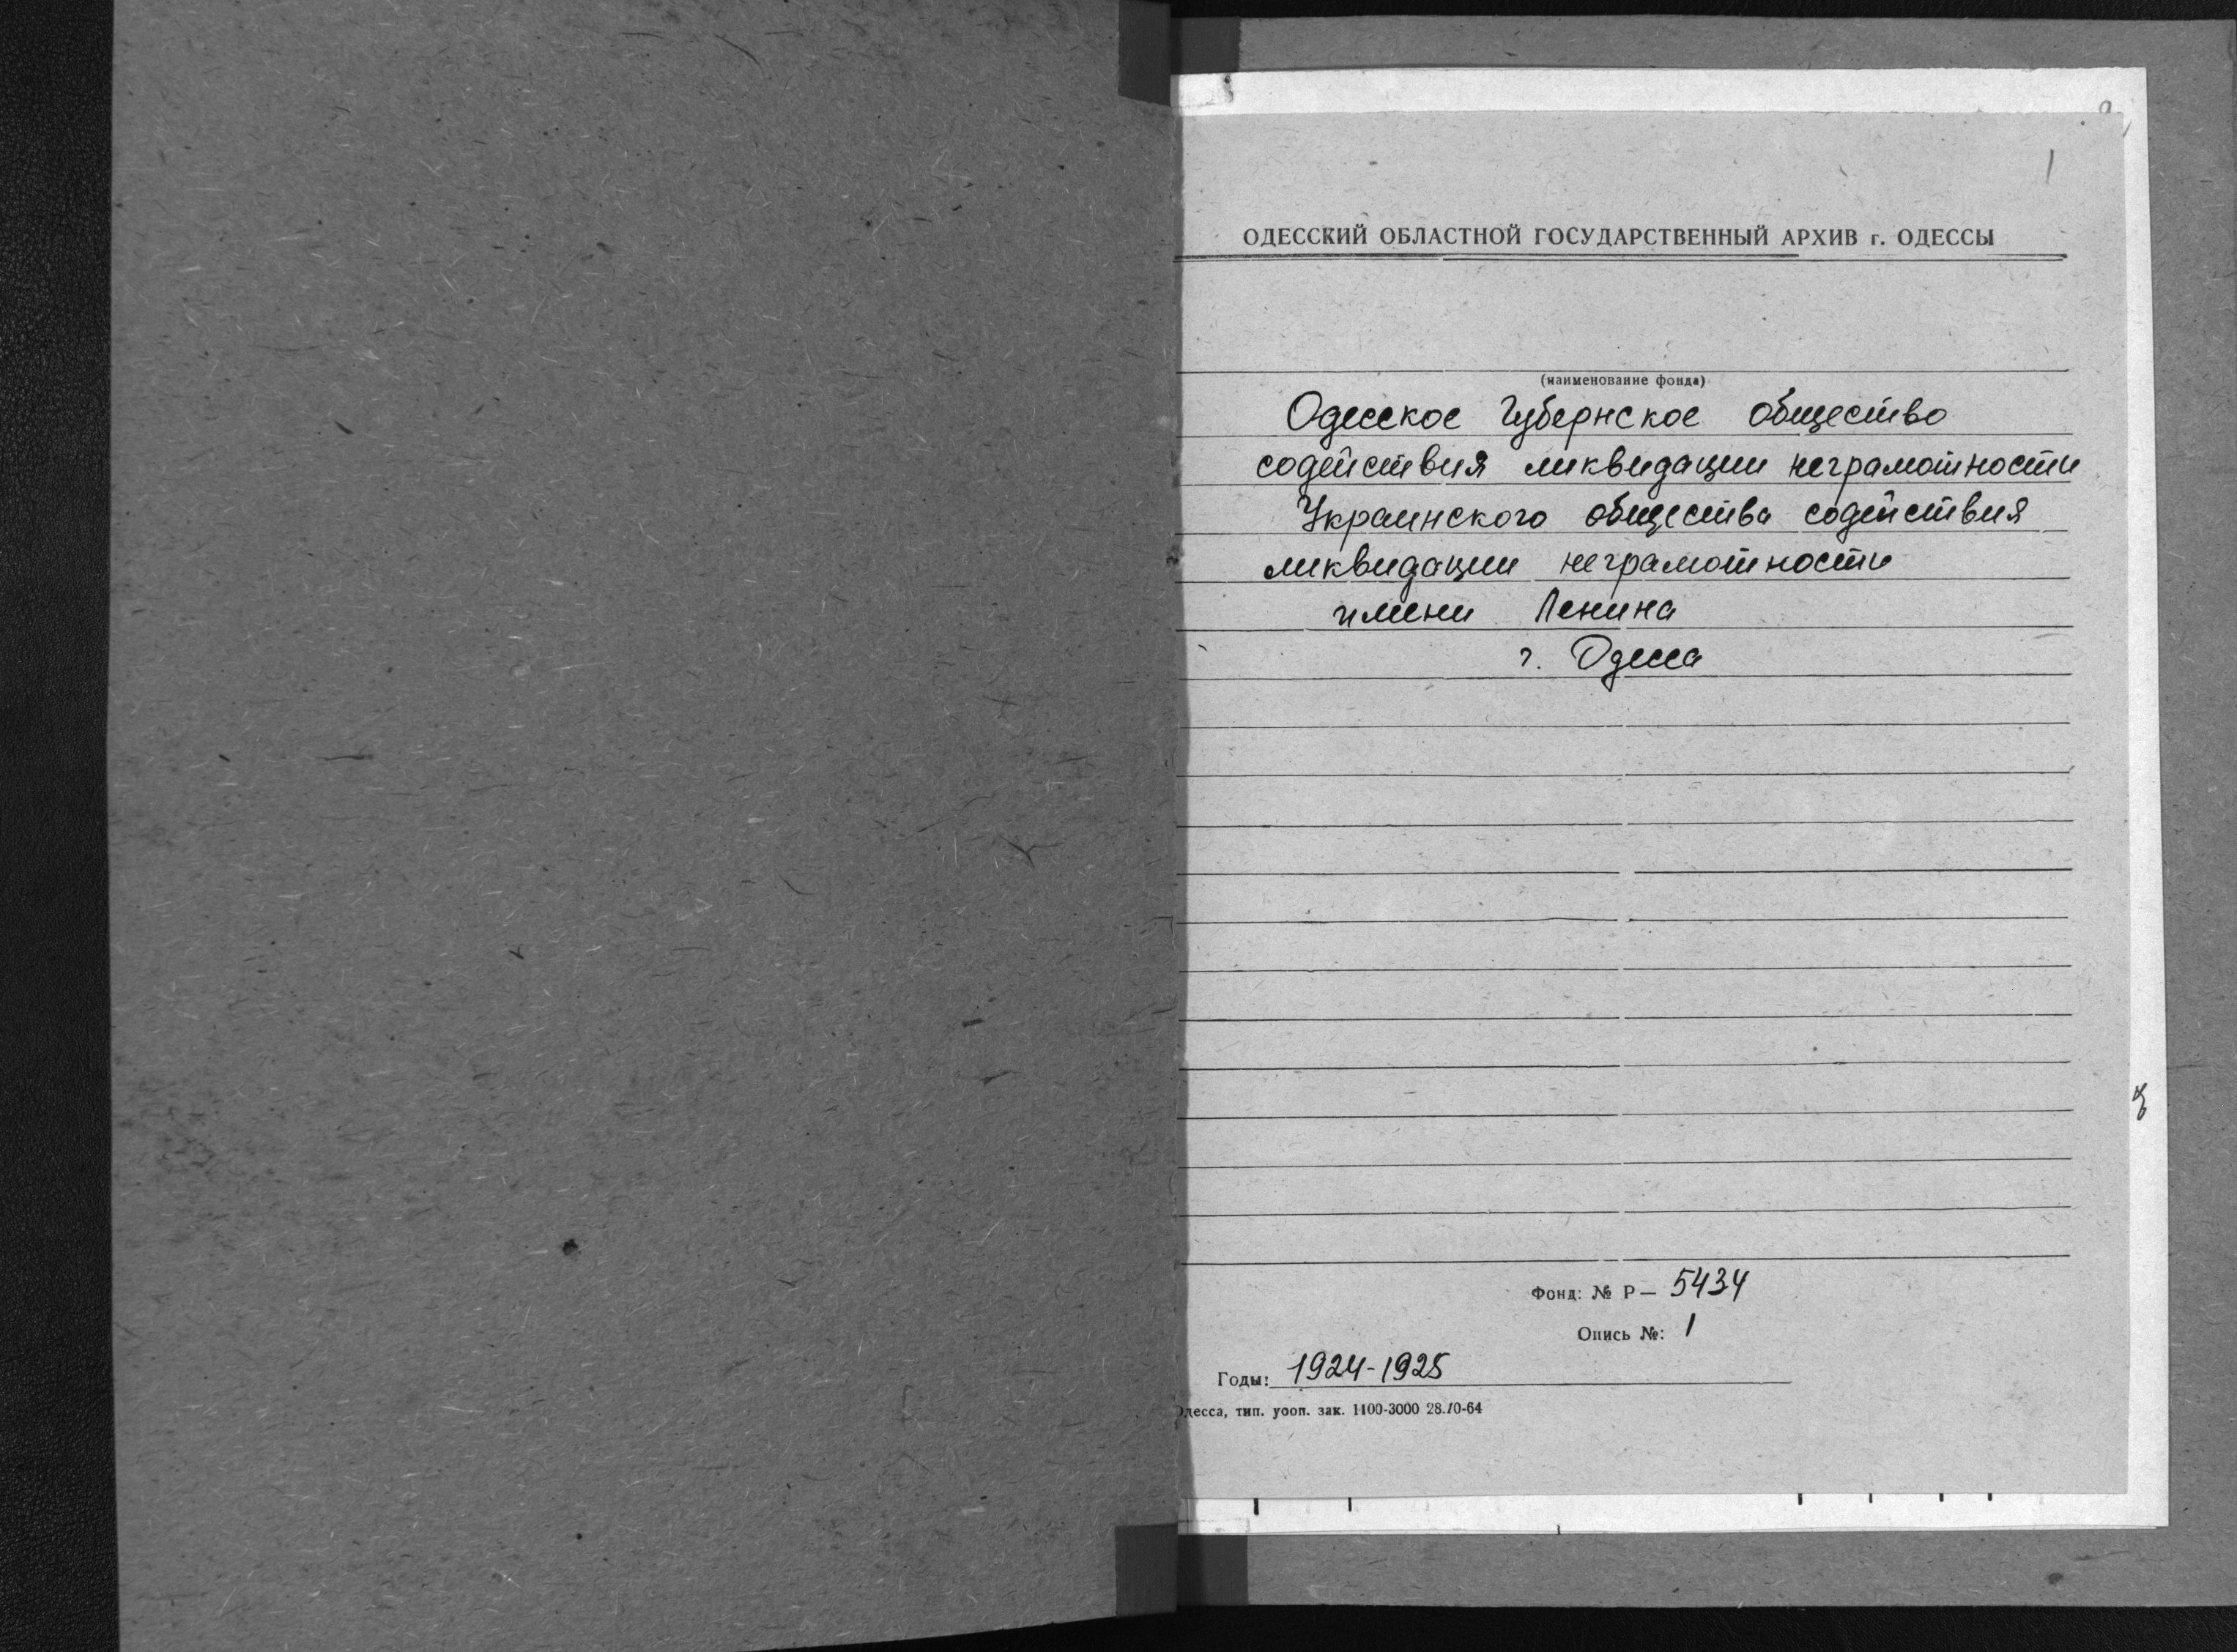 1
ОДЕССКИЙ ОБЛАСТНОЙ ГОСУДАРСТВЕННЫЙ АРХИВ г. ОДЕССЫ
(наименование фонда)
Одесское Губернское общество
содействия ликвидации неграмотности
Украинского общества содействия
ликвидации неграмотности
имени Ленина
г. Одесса
Фонд: № Р— 5434
Опись №: 1
Годы: 1924-1925
Одесса, тип. уооп. зак. 1100-3000 28.10-64